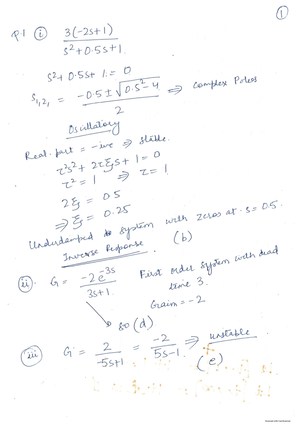 1
P.1 (i) 3(-2s+1)
s²+0.5s+1
s²+0.5s+1 = 0
s₁,₂, = -0.5 ± √0.5²-4 ⇒ Complex Poles
2
Oscillatory
Real part = -ive ⇒ stable.
τ²s² + 2τξs + 1 = 0
τ² = 1 ⇒ τ = 1
2ξ = 0.5
⇒ ξ = 0.25
Underdamped system with zeros at s = 0.5.
Inverse Response (b)
(ii) G = -2e^-3s First order system with dead
3s+1. time 3.
Gain = -2
so (d)
(iii) G = 2 = -2 ⇒ unstable
-5s+1 5s-1 (e)